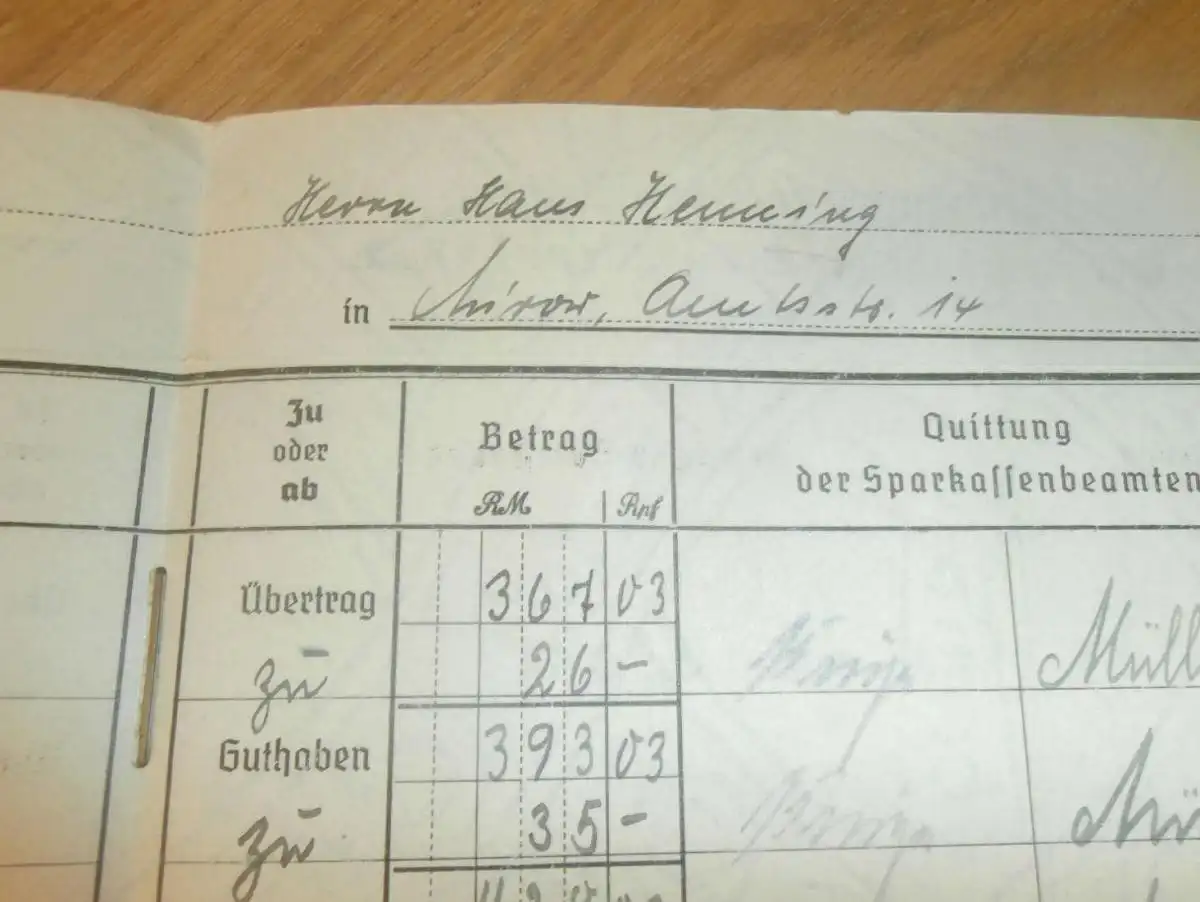 Herrn Hans Henning
in Mirow, Amtsstr. 14
Zu
oder
ab
Betrag
RM Rpf
Quittung
der Sparkassenbeamten
Übertrag 367 03
zu 26 - Müll
Guthaben 393 03
zu 35 - Mü